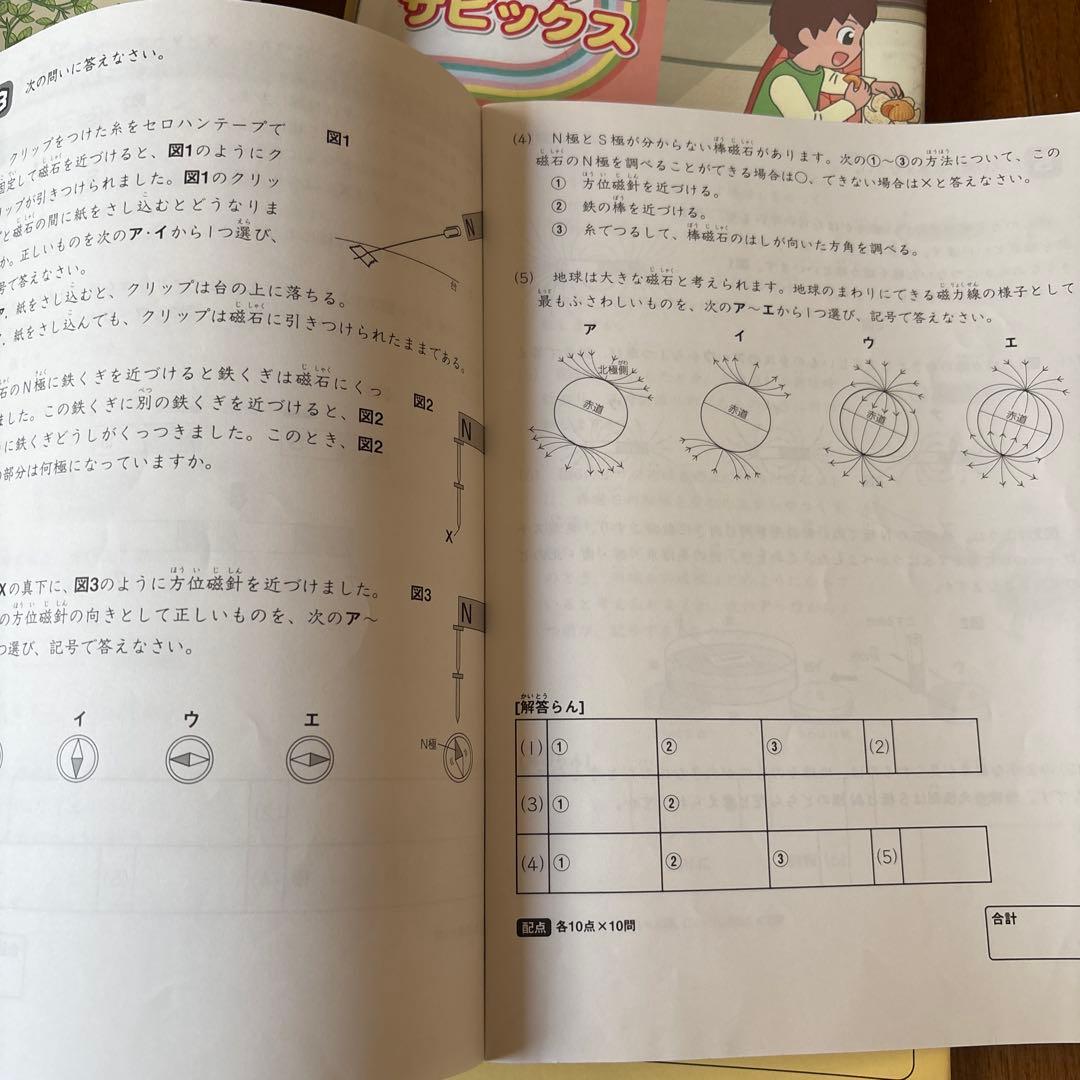 サピックス
3 次の問いに答えなさい。
クリップをつけた糸をセロハンテープで
固定して磁石を近づけると、図1のようにク
リップが引きつけられました。図1のクリッ
プと磁石の間に紙をさし込むとどうなりま
か。正しいものを次のア・イから1つ選び、
号で答えなさい。
ア. 紙をさし込むと、クリップは台の上に落ちる。
紙をさし込んでも、クリップは磁石に引きつけられたままである。
図1
N
台
石のN極に鉄くぎを近づけると鉄くぎは磁石にくっ
ました。この鉄くぎに別の鉄くぎを近づけると、図2
に鉄くぎどうしがくっつきました。このとき、図2
の部分は何極になっていますか。
図2
N
X
Xの真下に、図3のように方位磁針を近づけました。
の方位磁針の向きとして正しいものを、次のア〜
つ選び、記号で答えなさい。
図3
N
N極
イ ウ エ
(4) N極とS極が分からない棒磁石があります。次の①〜③の方法について、この
磁石のN極を調べることができる場合は○、できない場合は×と答えなさい。
① 方位磁針を近づける。
② 鉄の棒を近づける。
③ 糸でつるして、棒磁石のはしが向いた方角を調べる。
(5) 地球は大きな磁石と考えられます。地球のまわりにできる磁力線の様子として
最もふさわしいものを、次のア〜エから1つ選び、記号で答えなさい。
ア イ ウ エ
北極側
赤道 赤道 赤道 赤道
[解答らん]
(1) ① ② ③ (2)
(3) ① ②
(4) ① ② ③ (5)
配点 各10点×10問
合計